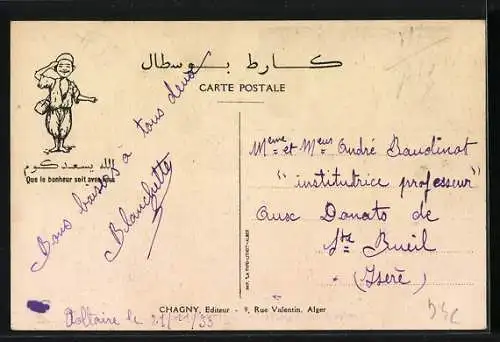 كارط بوسطال
CARTE POSTALE
الله يسعدكوم
Que le bonheur soit avec vous
Bons baisers à tous deux
Blanchette
Mme et Meur André Baudinot
"institutrice professeur"
aux Donats de
Ste Bueil
(Isère)
CHAGNY, Editeur - 9, Rue Valentin, Alger
le 21/11/35